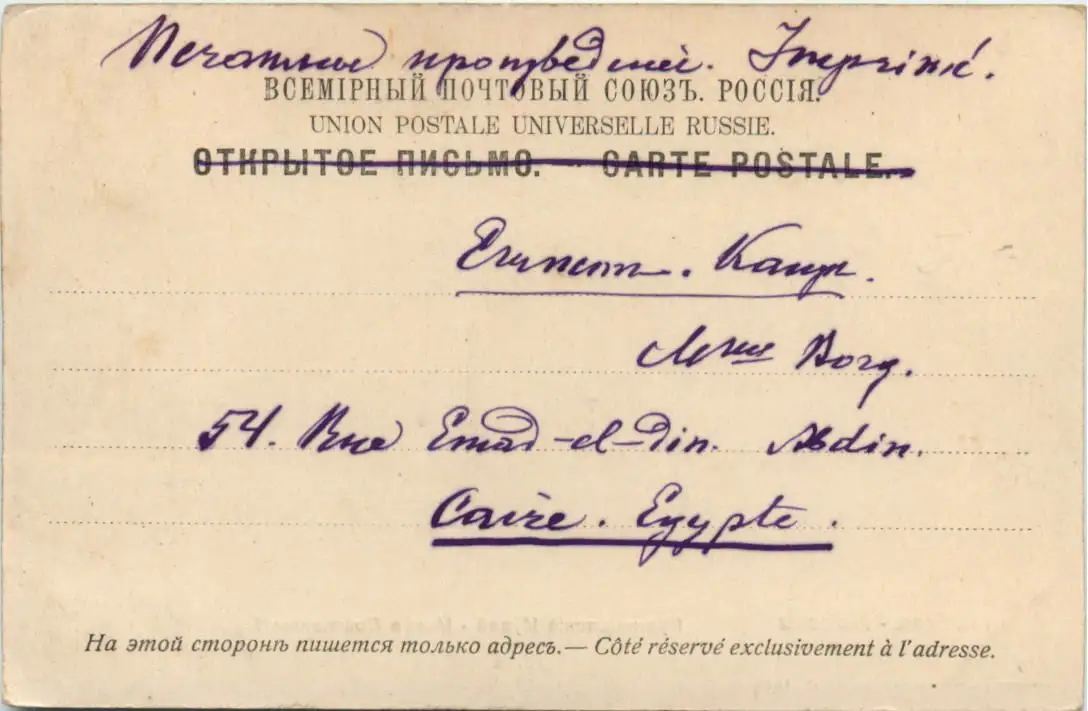 Печатные произведеній. Imprimé.
ВСЕМІРНЫЙ ПОЧТОВЫЙ СОЮЗЪ. РОССІЯ.
UNION POSTALE UNIVERSELLE RUSSIE.
ОТКРЫТОЕ ПИСЬМО. — CARTE POSTALE.
Египетъ. Каиръ.
Mme Borg.
54. Rue Emad-el-din. Abdin.
Caire. Egypte.
На этой сторонѣ пишется только адресъ.— Côté réservé exclusivement à l'adresse.